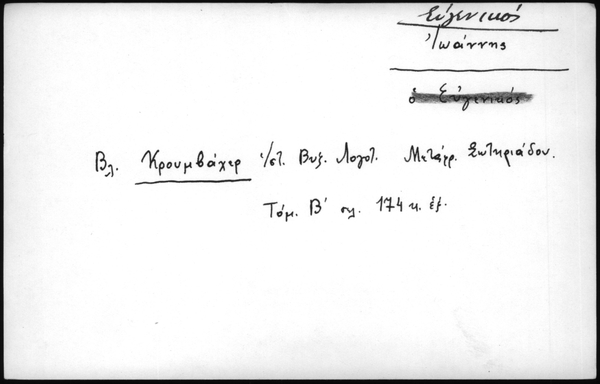 Εὐγενικός
Ἰωάννης
ὁ Εὐγενικός
Βλ. Κρουμβάχερ Ἱστ. Βυζ. Λογοτ. Μετάφρ. Σωτηριάδου.
Τόμ. Β' σελ. 174 κ. ἑξ.